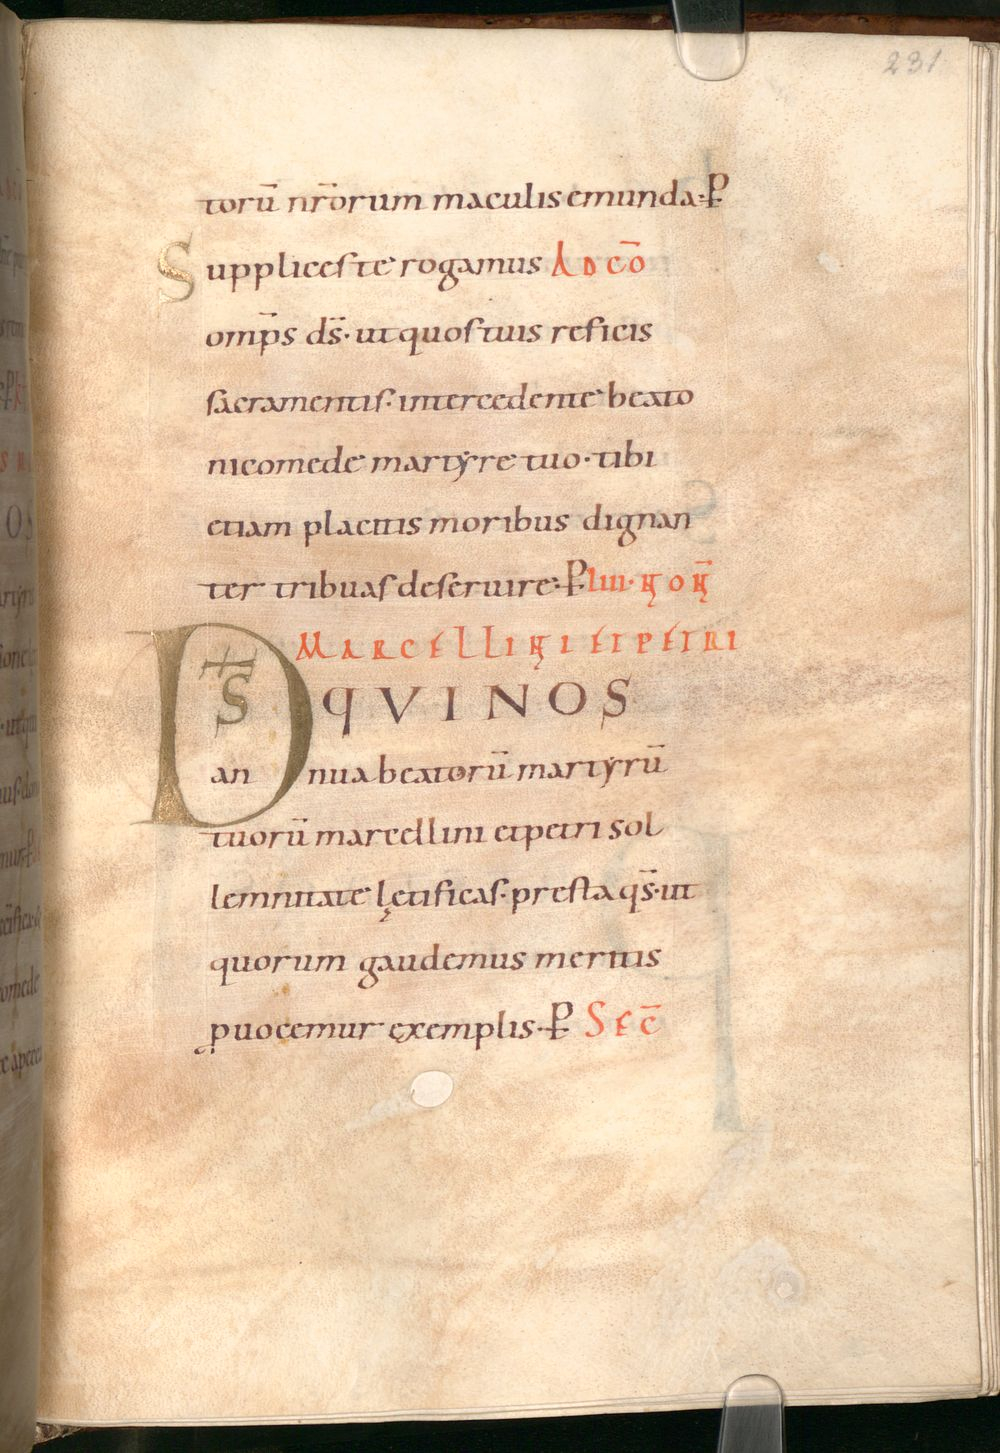 231
torū nr̄orum maculis emunda· P
Supplices te rogamus AD CŌ
omp̄s ds̄· ut quos tuis reficis
sacramentis· intercedente beato
nicomede martyre tuo· tibi
etiam placitis moribus dignan
ter tribuas deseruire· P IIII· NOÑ
MARCELLINI ET PETRI
DS̄ QVI NOS
annua beatorū martyrū
tuorū marcellini et petri sol
lemnitate lętificas· presta qs̄· ut
quorum gaudemus meritis
puocemur exemplis· P SEC̄